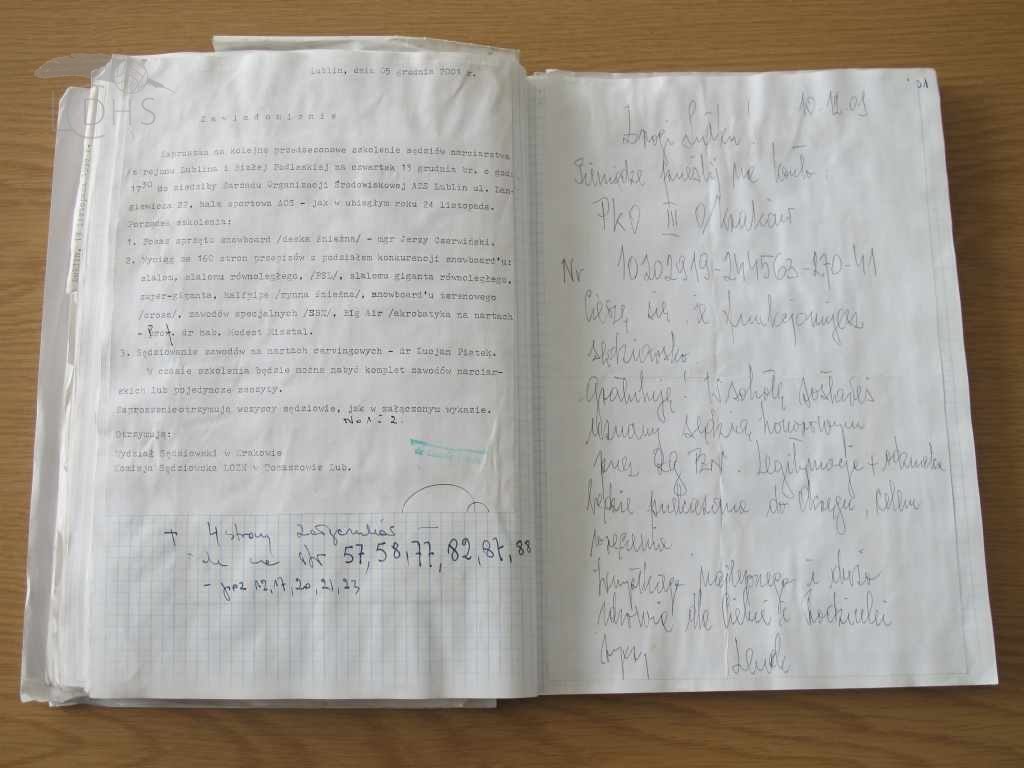 LDHS
Lublin, dnia 05 grudnia 2001 r.
Zawiadomienie
Zapraszam na kolejne przedsezonowe szkolenie sędziów narciarstwa
/z rejonu Lublina i Białej Podlaskiej na czwartek 13 grudnia br. o godz.
17³⁰ do siedziby Zarządu Organizacji Środowiskowej AZS Lublin ul. Lan-
giewicza 22, hala sportowa AOS - jak w ubiegłym roku 24 listopada.
Porządek szkolenia:
1. Pokaz sprzętu snowboard /deska śnieżna/ - mgr Jerzy Czerwiński.
2. Wyciąg ze 160 stron przepisów z podziałem konkurencji snowboard'u:
slalom, slalomu równoległego, /PSL/, slalomu giganta równoległego,
super-giganta, halfpipe /rynna śnieżna/, snowboard'u terenowego
/cross/, zawodów specjalnych /SBX/, Big Air /akrobatyka na nartach
- Prof. dr hab. Modest Misztal.
3. Sędziowanie zawodów na nartach carvingowych - dr Lucjan Piątek.
W czasie szkolenia będzie można nabyć komplet zawodów narciar-
skich lub pojedyncze zeszyty.
Zaproszenie otrzymują wszyscy sędziowie, jak w załączonym wykazie.
No 1 i 2.
Otrzymują:
Wydział Sędziowski w Krakowie
Komisja Sędziowska LOZN w Tomaszowie Lub.
+ 4 strony załączników
na str 57, 58, 77, 82, 87, 88
- poz 12, 17, 20, 21, 23
'01
10.12.01
Drogi Lutku!
Pieniądze prześlij na konto:
PKO III O/Kraków
Nr 10202919-244563-270-41
Cieszę się, że
sędziowsko
Gratuluję! W sobotę zostałeś
uznany sędzią honorowym
przez Zg PZN. Legitymacja + odznaka
będzie przekazana do Okręgu, celem
wręczenia
Wszystkiego najlepszego i dużo
zdrowia dla Ciebie i Rodzinki
życzy